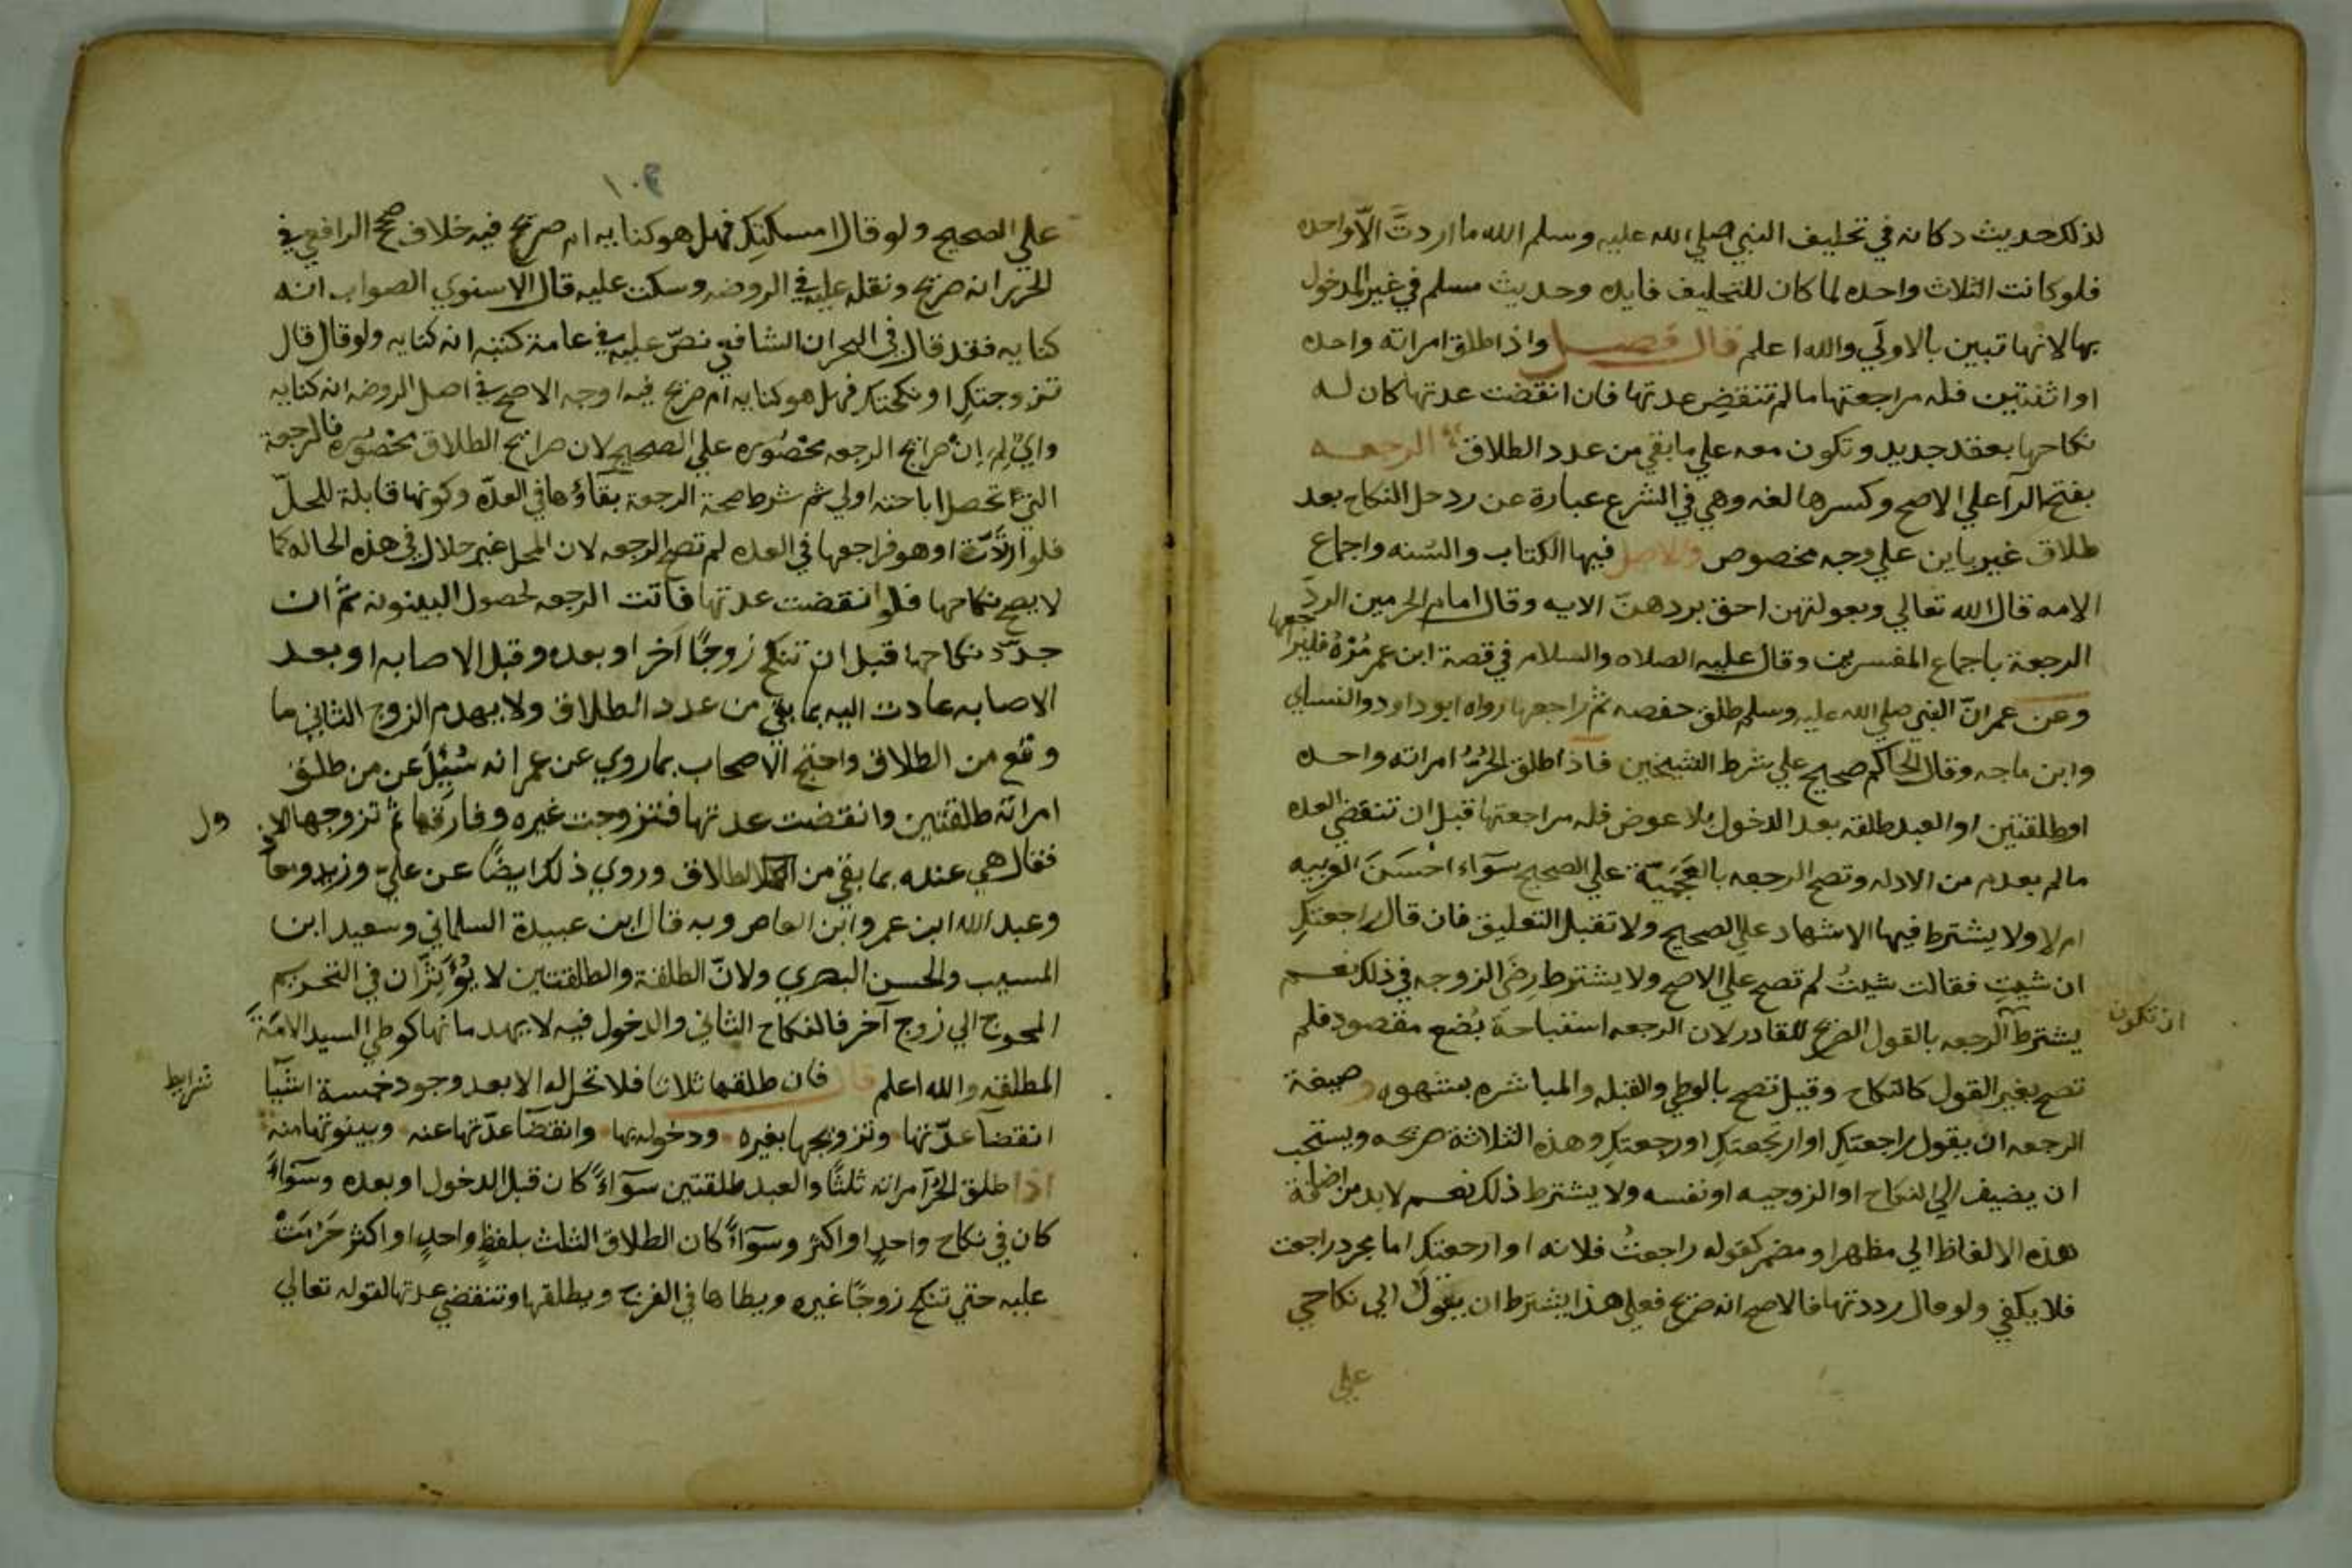 لذلك حديث دكانه في تحليف النبي صلي الله عليه وسلم الله ما اردتَّ الاّ واحده
فلو كانت الثلاث واحده لما كان للتحليف فايده وحديث مسلم في غير المدخول
بها لانها تبين بالاولَي والله اعلم قال فصل واذا طلق امراته واحده
او اثنتين فله مراجعتها ما لم تنقضِ عدتها فان انقضت عدتها كان له
نكاحها بعقد جديد وتكون معه علي ما بقي من عدد الطلاق الرجعه
بفتح الرآ علي الاصح وكسرها لغه وهي في الشرع عبارة عن رد حل النكاح بعد
طلاق غير باين علي وجه مخصوص والاصل فيها الكتاب والسُنه واجماع
الامه قال الله تعالي وبعولتهن احق بردهنّ الايه وقال امام الحرمين الردّ
الرجعة باجماع المفسرين وقال عليه الصلاه والسلام في قصة ابن عمر مُرْهُ فليراجعها
وعن عمر انّ النبي صلي الله عليه وسلم طلق حفصه ثم راجعها رواه ابو داود والنساي
وابن ماجه وقال الحاكم صحيح علي شرط الشيخين فاذا طلق الحُرُّ امراته واحده
او طلقتين او العبد طلقه بعد الدخول بلا عوض فله مراجعتها قبل ان تنقضي العده
ما لم بعدم من الادله وتصح الرجعه بالعَجَمِيّة علي الصحيح سوآء احْسَنَ العربيه
ام لا ولا يشترط فيها الاشهاد علي الصحيح ولا تقبل التعليق فان قال راجعتكِ
ان شيتِ فقالت شيتُ لم تصح علي الاصح ولا يشترط رِضَي الزوجه في ذلك نعم
يشترط الرجعه بالقول الصريح للقادر لان الرجعه استباحة بُضع مقصود فلم
ان تكون
تصح بغير القول كالنكاح وقيل تصح بالوطي والقبله والمباشره بشهوه وصيغة
الرجعه ان يقول راجعتكِ او ارتجعتكِ او رجعتكِ وهذه الثلاثة صريحه ويستحب
ان يضيف الي النكاح او الزوجيه او نفسه ولا يشترط ذلك نعم لا بد من اضافة
هذه الالفاظ الي مظهر او مضمر كقوله راجعتُ فلانه او ارجعتكِ اما مجرد راجعت
فلا يكفي ولو قال رددتها فالاصح انه صريح فعلي هذا يشترط ان يقولَ الي نكاحي
علي
١٠٩
علي الصحيح ولو قال امسكتكِ فهل هو كنايه ام صريح فيه خلاف صحح الرافعي في
الحرير انه صريح ونقله عليه في الروضه وسكت عليه قال الاسنوي الصواب انه
كنايه فقد قال في البحر ان الشافعي نصّ عليه في عامة كتبه انه كنايه ولو قال قال
تزوجتكِ او نكحتكِ فهل هو كنايه ام صريح فيه اوجه الاصح في اصل الروضه انه كنايه
واي لم إنّ صرايح الرجعه محصُوره علي الصحيح لان صرايح الطلاق محصُوره فالرجعة
التي تحصل اباحته اولي ثم شرط صحة الرجعة بقآؤها في العدّه وكونها قابلة للحلّ
فلو ارتدّتْ او هو فراجعها في العده لم تصح الرجعه لان المحل غير حلال في هذه الحاله كما
لا يصح نكاحها فلو انقضت عدتها فاتت الرجعه لحصول البينونه ثمّ ان
جدّد نكاحها قبل ان تنكح زوجًا آخر او بعده وقبل الاصابه او بعد
الاصابه عادت اليه بما بقي من عدد الطلاق ولا يهدم الزوج الثاني ما
وقع من الطلاق واحتج الاصحاب بما روي عن عمر انه سُئِلَ عن من طلق
امراته طلقتين وانقضت عدتها فتزوجت غيره وفارقها ثم تزوجها الاول
فقال هي عنده بما بقي من الطلاق وروي ذلك ايضًا عن عليّ وزيد ومعا
وعبد الله ابن عمر وابن العاص وبه قال ابن عبيدة السلماني وسعيد ابن
المسيب والحسن البصري ولانّ الطلقة والطلقتين لا يُؤَثِّران في التحريم
المحوج الي زوج آخر فالنكاح الثاني والدخول فيه لا يهد مانها كوطي السيد الامَةَ
المطلقه والله اعلم قال فان طلقها ثلاثا فلا تحل له الا بعد وجود خمسة اشيا
شرايط
انقضآ عدّتها وتزويجها بغيره ودخوله بها وانقضآ عدّتها عنه وبينونتها منه
اذا طلق الحُرّ امراته ثلثًا والعبد طلقتين سوآءً كان قبل الدخول او بعده وسوآءً
كان في نكاح واحدٍ او اكثر وسوآءً كان الطلاق الثلث بلفظٍ واحدٍ او اكثر حَرُمَتْ
عليه حتي تنكح زوجًا غيره ويطاها في الفرج ويطلقها وتنقضي عدتها لقوله تعالي